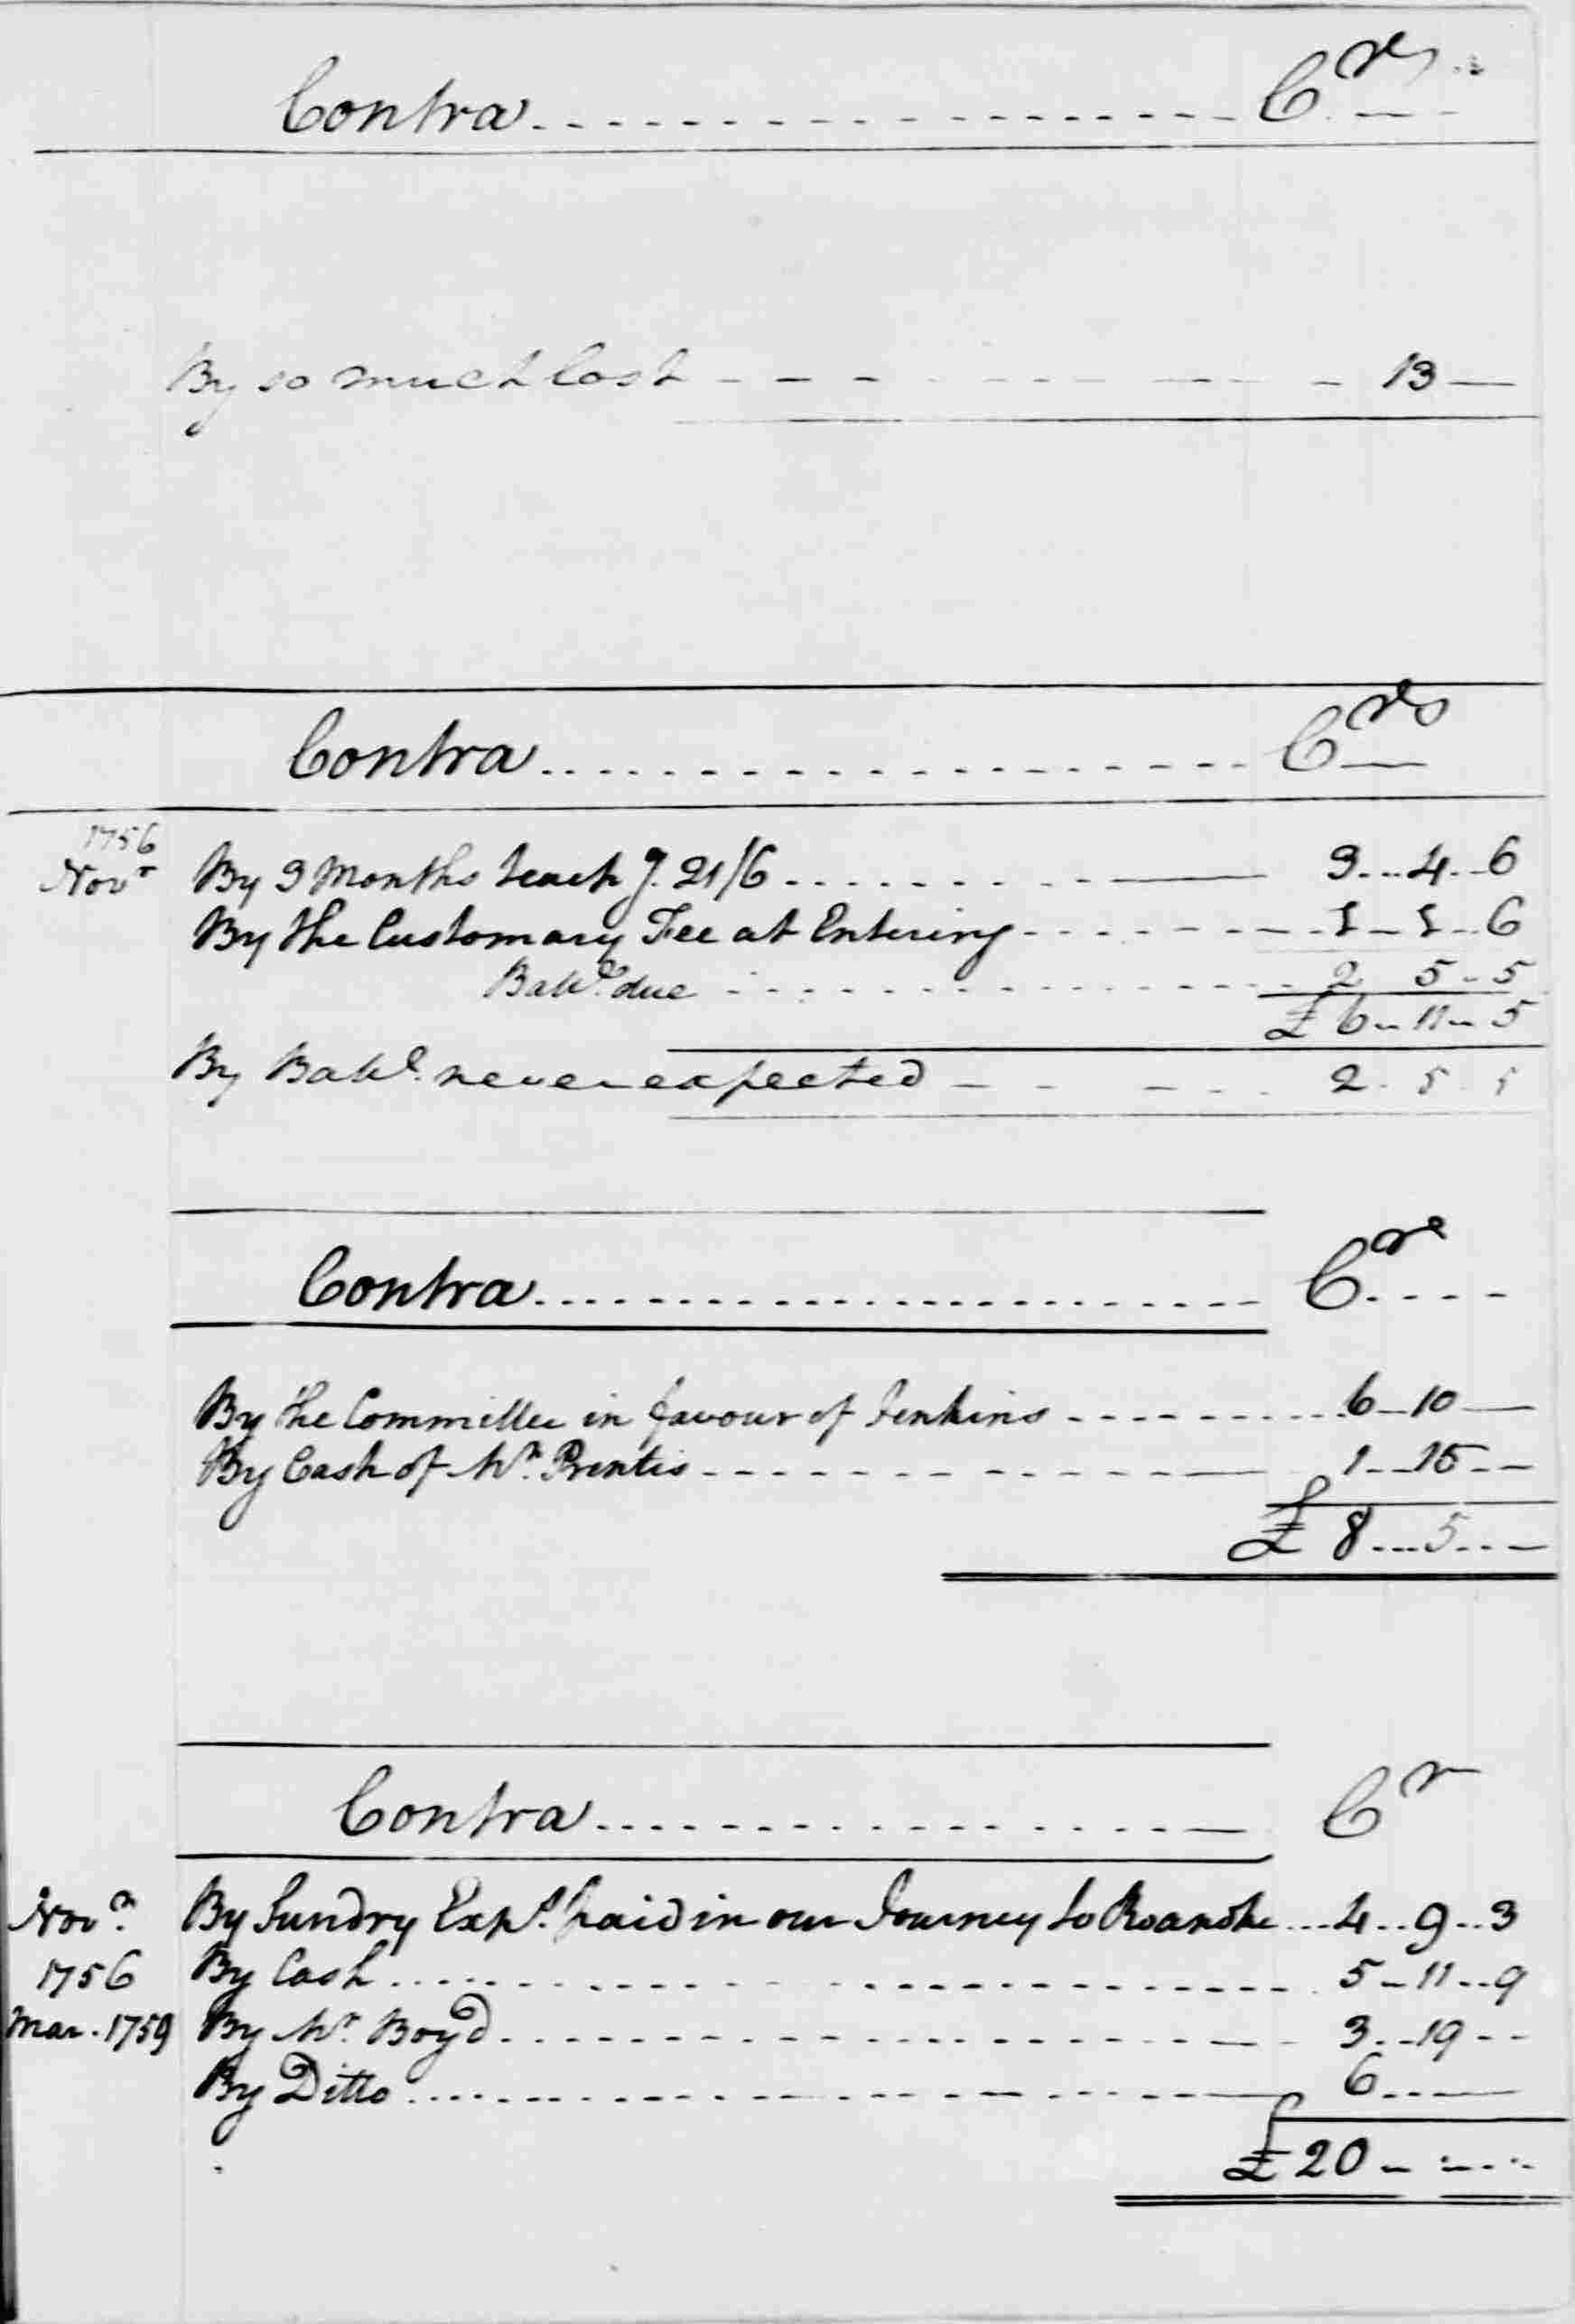 Contra Crs
By so much lost 13
Contra Crs
1756
Novr By 3 Months teachg. 21/6 3 4 6
By the Customary Fee at Entering 1 1 6
Balle. due 2 5 5
£ 6 11 5
By Balle. never expected 2 5 5
Contra Cr
By the Committee in favour of Jenkins 6 10
By Cash of Mr. Prentis 1 15
£ 8 5
Contra Cr
Novr. By Sundry Exps. paid in our Journey to Roanoke 4 9 3
1756 By Cash 5 11 9
Mar. 1759 By Mr. Boyd 3 19
By Ditto 6
£ 20